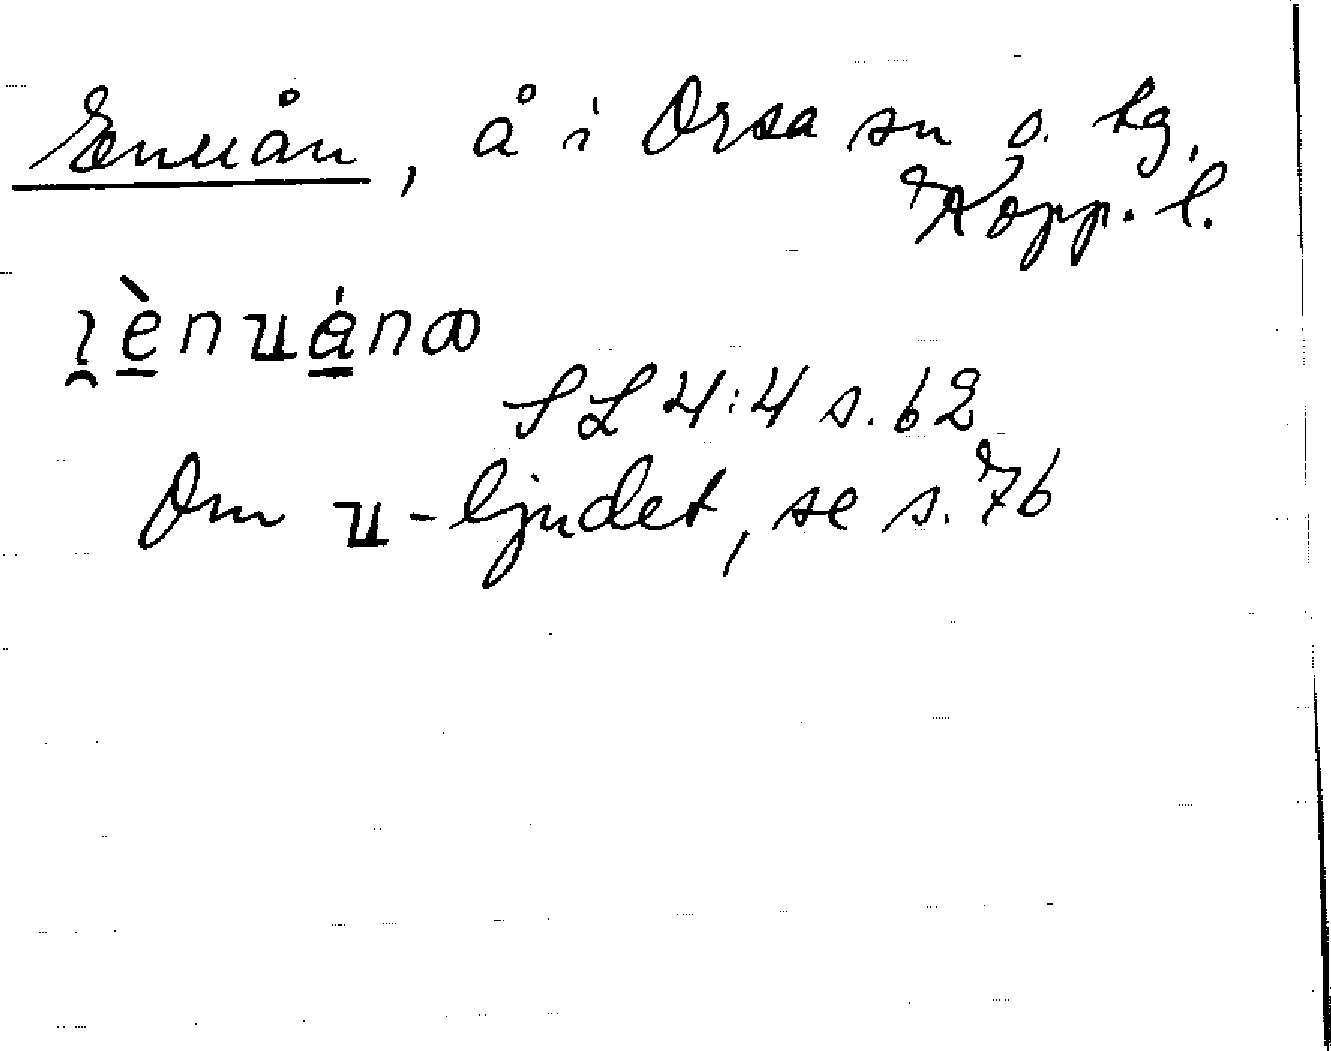 Enuån, å i Orsa sn o. hg,
Kopp. l.
ı̯ènuánꝏ
SL 4:4 s. 62
Om u-ljudet, se s. 76